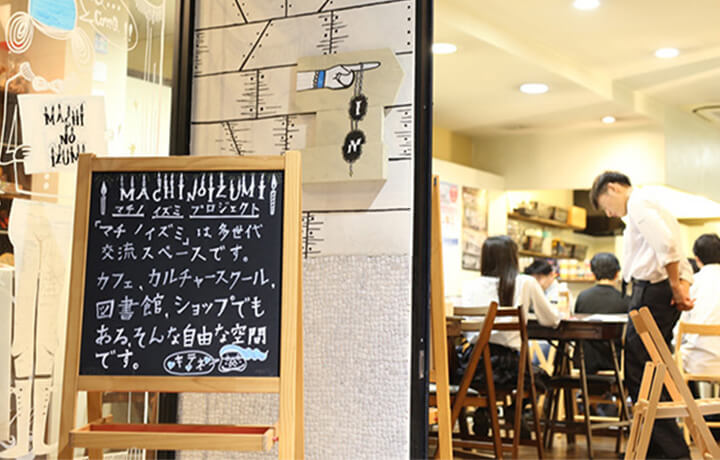 MACHI
NO
IZUMI
I
N
MACHI NO IZUMI
マチノ イズミ プロジェクト
「マチノイズミ」は多世代
交流スペースです。
カフェ、カルチャースクール、
図書館、ショップでも
ある、そんな自由な空間
です。
キテネー